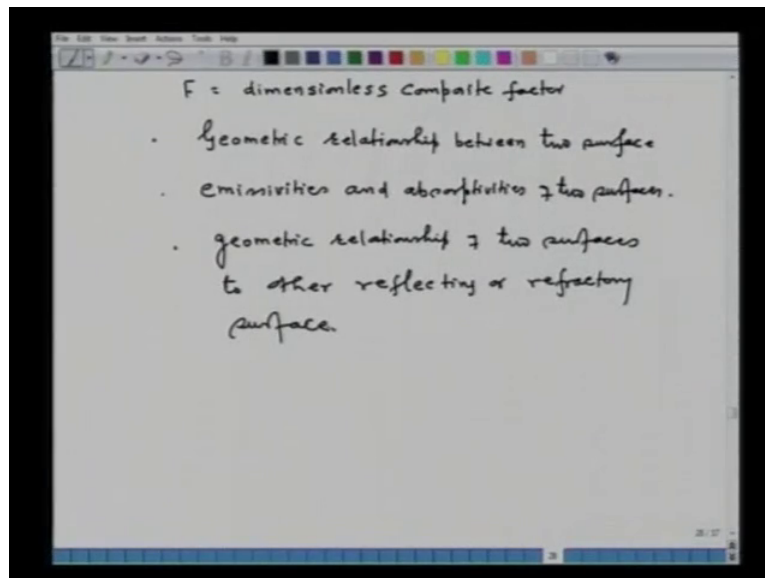 File Edit View Insert Actions Tools Help
F = dimensionless Composite factor
. Geometric relationship between two surface
. emissivities and absorptivities of two surfaces.
. geometric relationship of two surfaces
to other reflecting or refractory
surface.